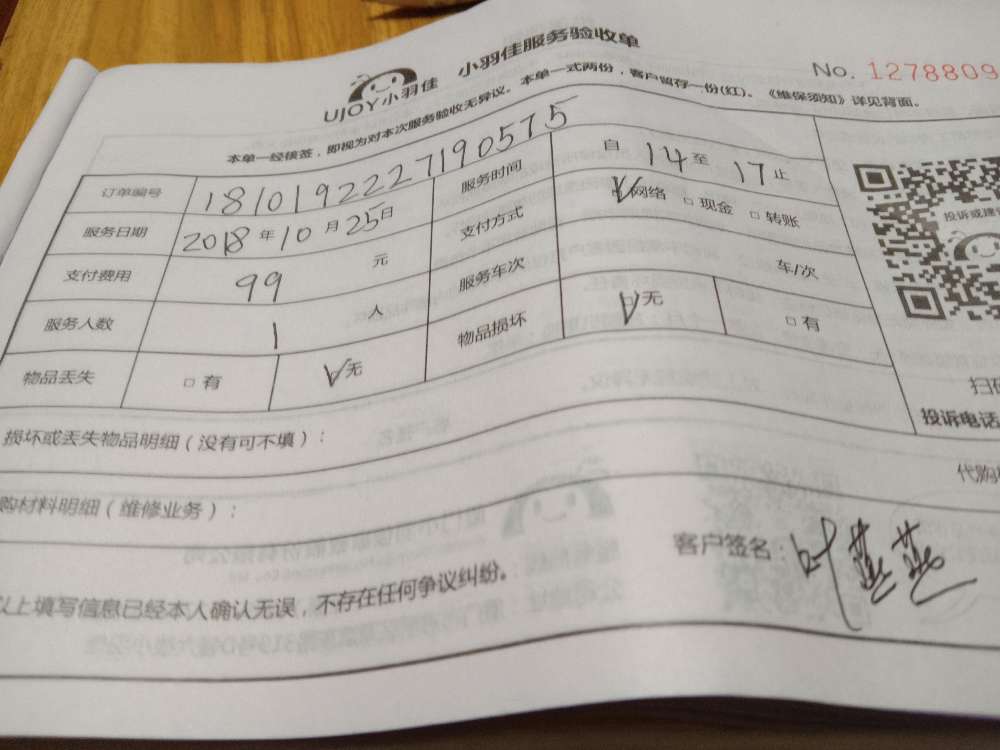 UJOY小羽佳 小羽佳服务验收单
No. 1278809
本单一经核签，即视为对本次服务验收无异议。本单一式两份，客户留存一份(红)。《维保须知》详见背面。
订单编号 1810192227190575 服务时间 自 14 至 17 止
服务日期 2018 年 10 月 25 日 支付方式 ☑网络 □现金 □转账
支付费用 99 元 服务车次 车/次
服务人数 1 人 物品损坏 ☑无 □有
物品丢失 □有 ☑无
投诉或建
扫码
投诉电话
损坏或丢失物品明细（没有可不填）：
代购
购材料明细（维修业务）：
以上填写信息已经本人确认无误，不存在任何争议纠纷。
客户签名：叶燕燕